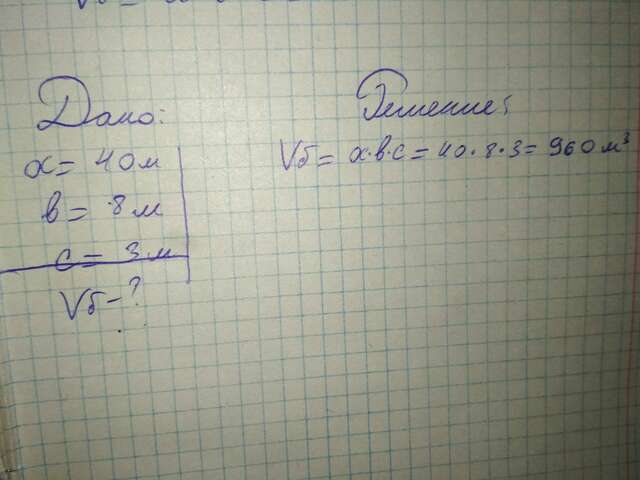 Дано:
a = 40 м
в = 8 м
с = 3 м
Vб - ?
Решение:
Vб = а·в·с = 40·8·3 = 960 м³